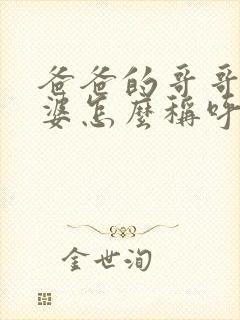 爸爸的哥哥
婆怎麼稱呼
金世洵